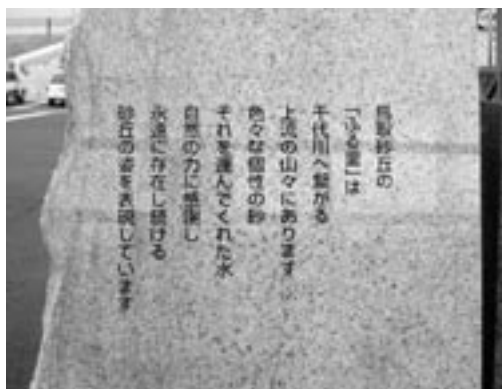 鳥取砂丘の
「ふる里」は
千代川へ繋がる
上流の山々にあります
色々な個性の砂
それを運んでくれた水
自然の力に感謝し
永遠に存在し続ける
砂丘の姿を表現しています